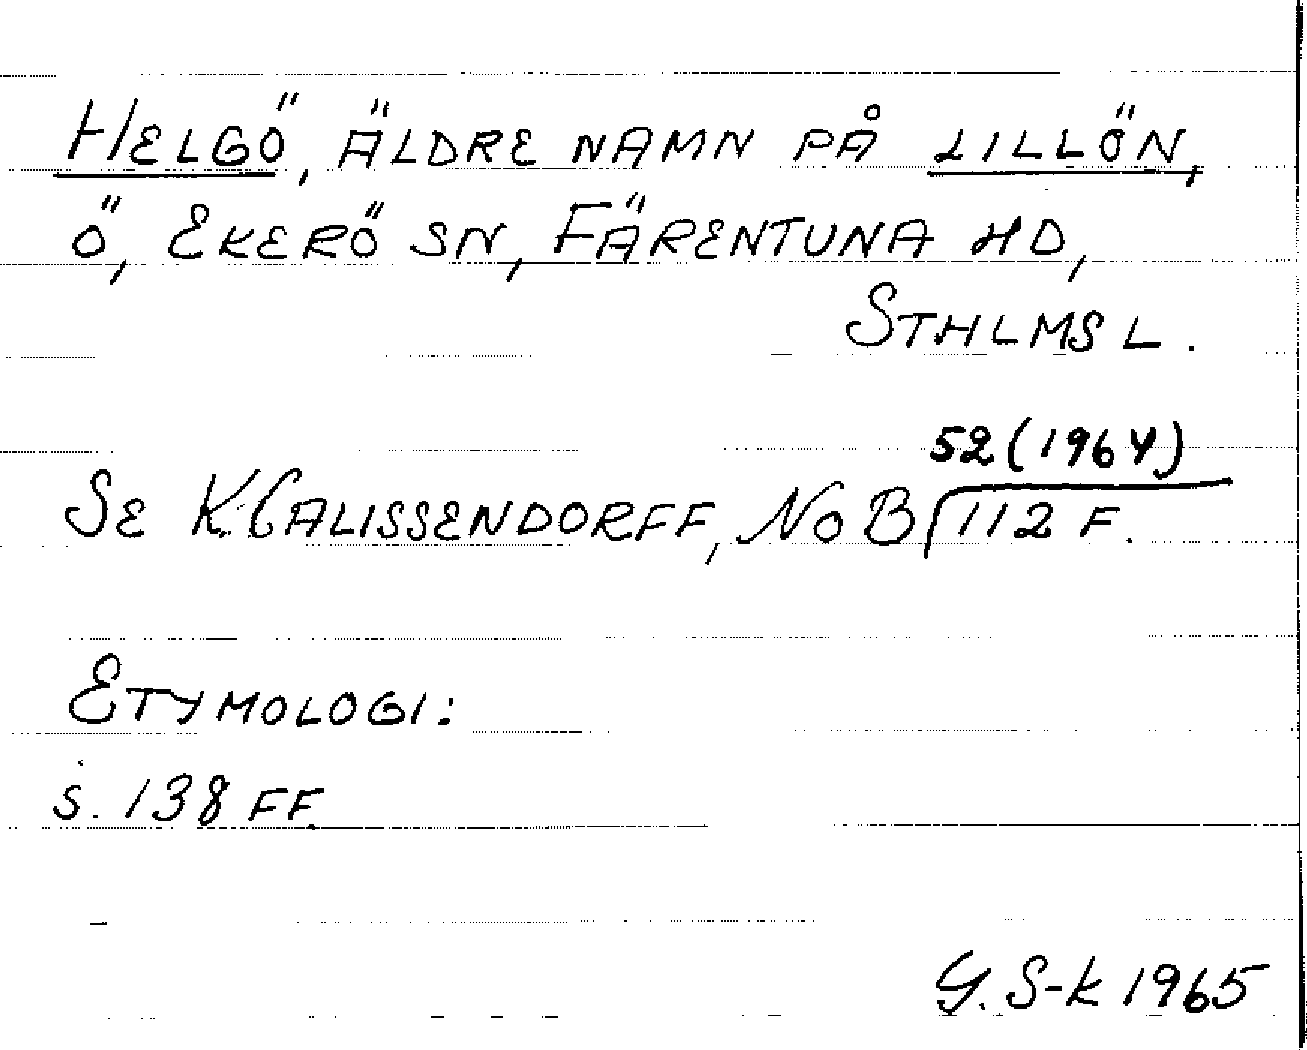 HELGÖ, ÄLDRE NAMN PÅ LILLÖN,
Ö, EKERÖ SN, FÄRENTUNA HD,
STHLMS L.
52 (1964)
SE K. CALISSENDORFF, NoB 112 F.
ETYMOLOGI:
S. 138 FF.
G. S-k 1965